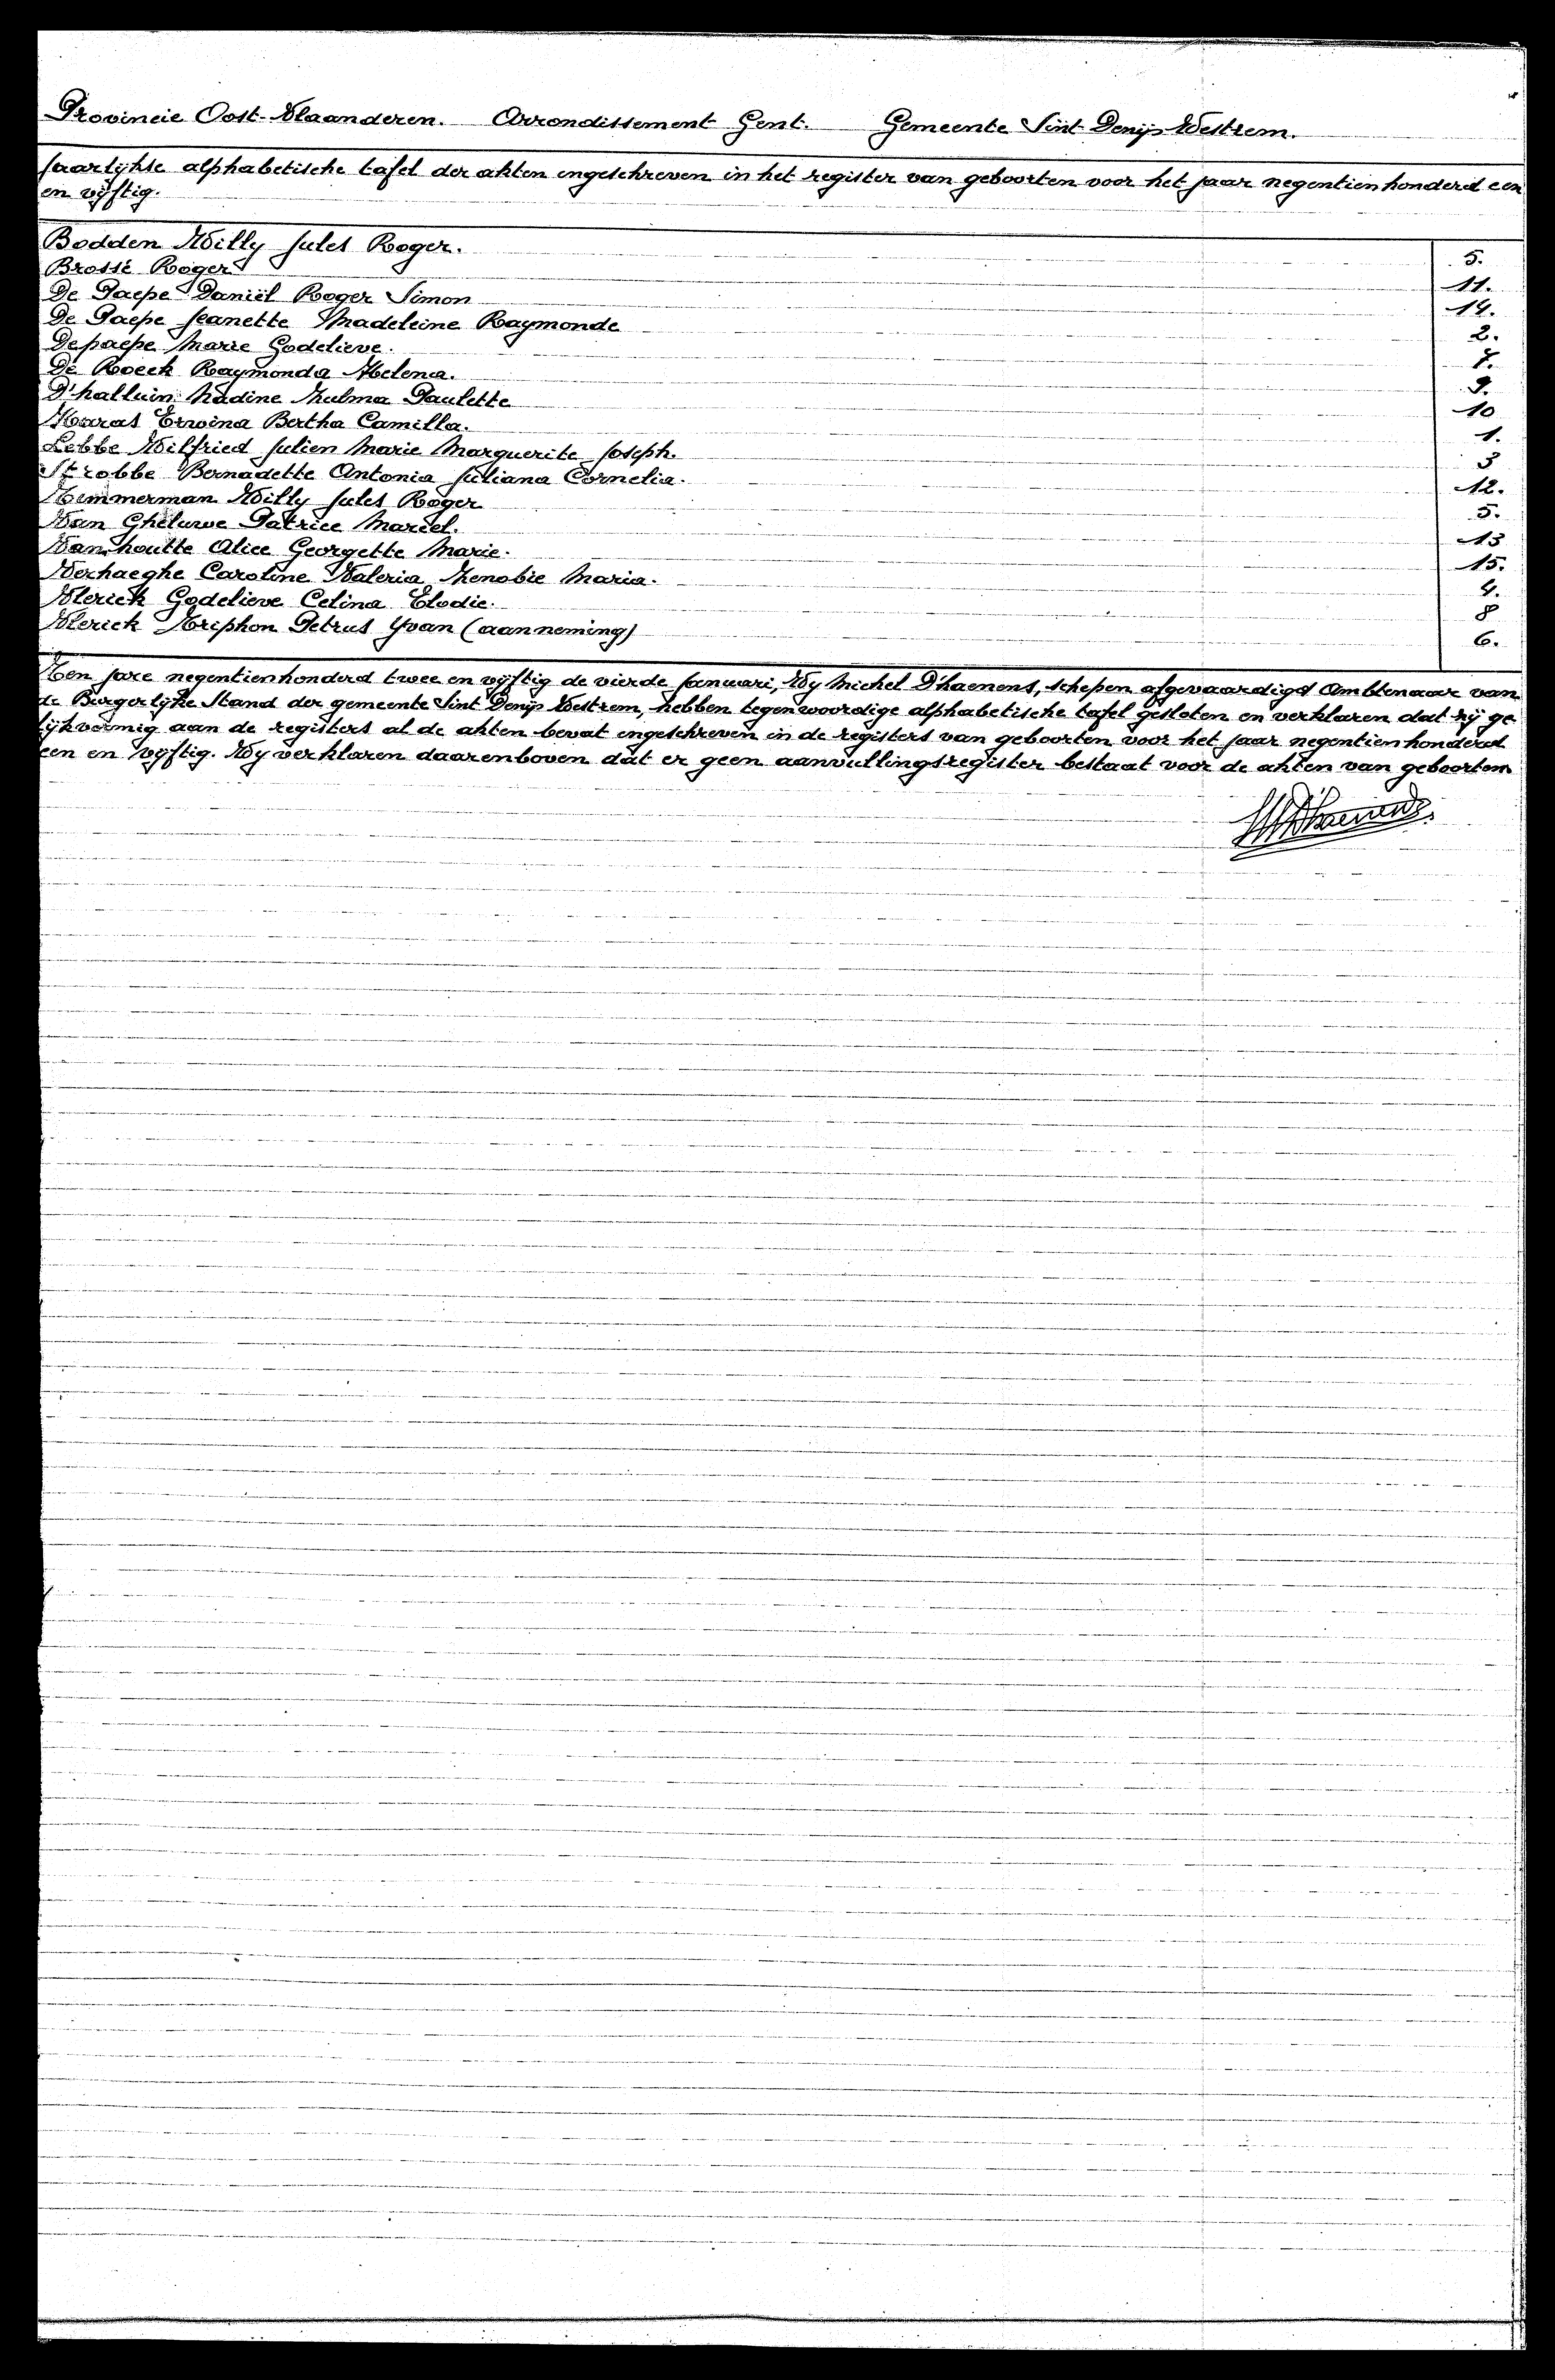 Provincie Oost-Vlaanderen. Arrondissement Gent. Gemeente Sint Denijs Westrem.
Jaarlijkse alphabetische tafel der akten ingeschreven in het register van geboorten voor het jaar negentienhonderd een
en vijftig.
Bodden Willy Jules Roger. 5.
Brossé Roger 11.
De Paepe Daniël Roger Simon 14.
De Paepe Jeanette Madeleine Raymonde 2.
Depaepe Marie Godelieve. 7.
De Roeck Raymonda Helena. 9.
D'halluin Nadine Zulma Paulette 10
Haras Erwina Bertha Camilla. 1.
Lebbe Wilfried Julien Marie Marguerite Joseph. 3
Strobbe Bernadette Antonia Juliana Cornelia. 12.
Timmerman Willy Jules Roger 5.
Van Gheluwe Patrice Marcel. 13
Vanhoutte Alice Georgette Marie. 15.
Verhaeghe Caroline Valeria Zenobie Maria. 4.
Vlerick Godelieve Celina Elodie. 8
Vlerick Triphon Petrus Yvan (aanneming) 6.
Ten jare negentienhonderd twee en vijftig de vierde Januari, Wij Michel D'haenens, schepen afgevaardigd Ambtenaar van
de Burgerlijke Stand der gemeente Sint Denijs Westrem, hebben tegenwoordige alphabetische tafel gesloten en verklaren dat hij ge
lijkvormig aan de registers al de akten bevat ingeschreven in de registers van geboorten voor het jaar negentienhonderd
een en vijftig. Wij verklaren daarenboven dat er geen aanvullingsregister bestaat voor de akten van geboorten
M D'haenens